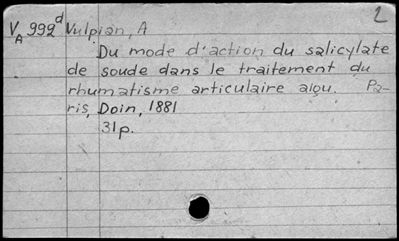 2
VA 992d Vulpian, A
Du mode d'action du salicylate
de soude dans le traitement du
rhumatisme articulaire aigu. Pa-
ris, Doin, 1881
31p.